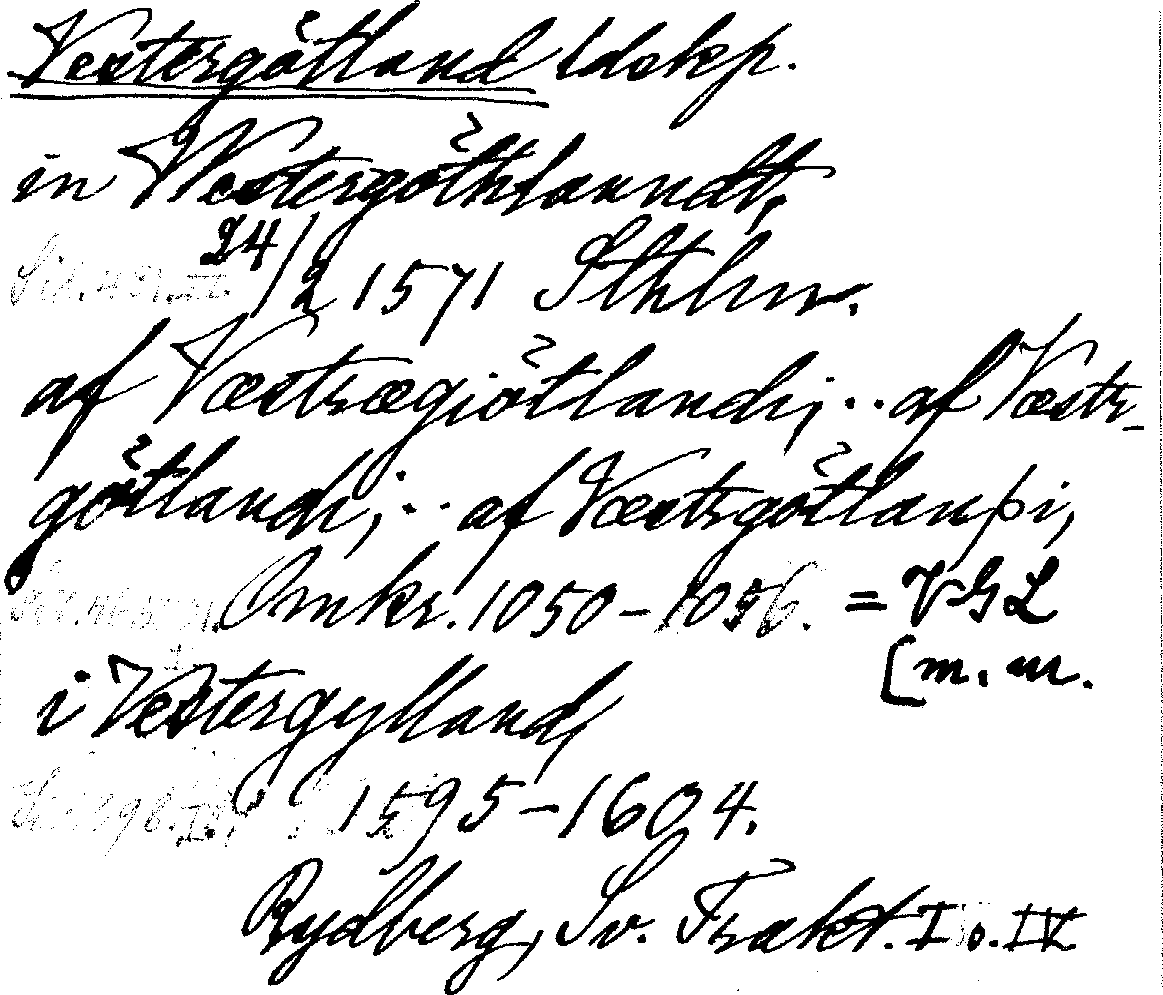 Vestergötland ldskp.
in Westergöthlanndt,
24/2 1571 Sthlm.
af Væstrægiötlandi, ·· af Væstr-
götlandi, ·· af Væstrgötlanþi,
Omkr. 1050–1056. = VGL
[m. m.
i Vestergylland,
1595–1604.
Rydberg, Sv. Trakt. I o. IV